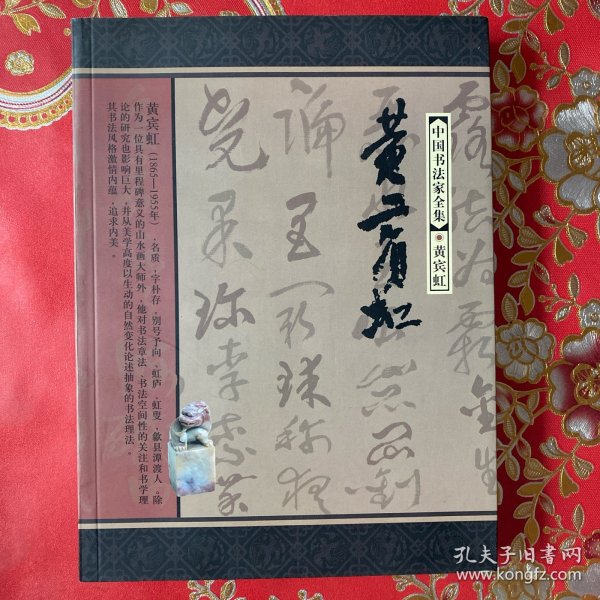 中国书法家全集 ◉ 黄宾虹
黄宾虹
露結為霜金生
出崑岡劍
號巨闕珠稱夜
光果珍李柰菜
黄宾虹（1865—1955年），名质，字朴存，别号予向、虹庐、虹叟，歙县潭渡人。除
作为一位具有里程碑意义的山水画大师外，他对书法章法、书法空间性的关注和书学理
论的研究也影响巨大，并从美学高度以生动的自然变化论述抽象的书法理法。
其书法风格激情内蕴，追求内美。
孔夫子旧书网
www.kongfz.com